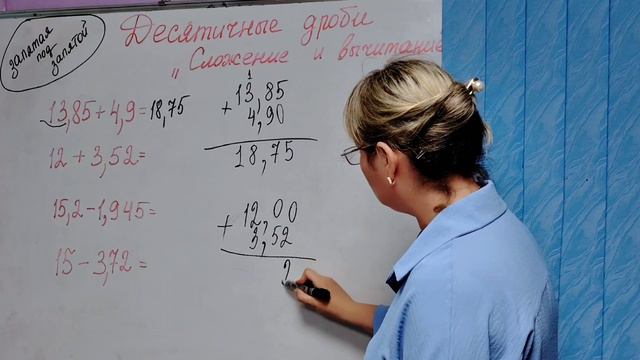 запятая
под
запятой
Десятичные дроби
„Сложение и вычитание
13,85+4,9=18,75
12+3,52=
15,2-1,945=
15-3,72=
1
13,85
+ 4,90
18,75
12,00
+ 3,52
2